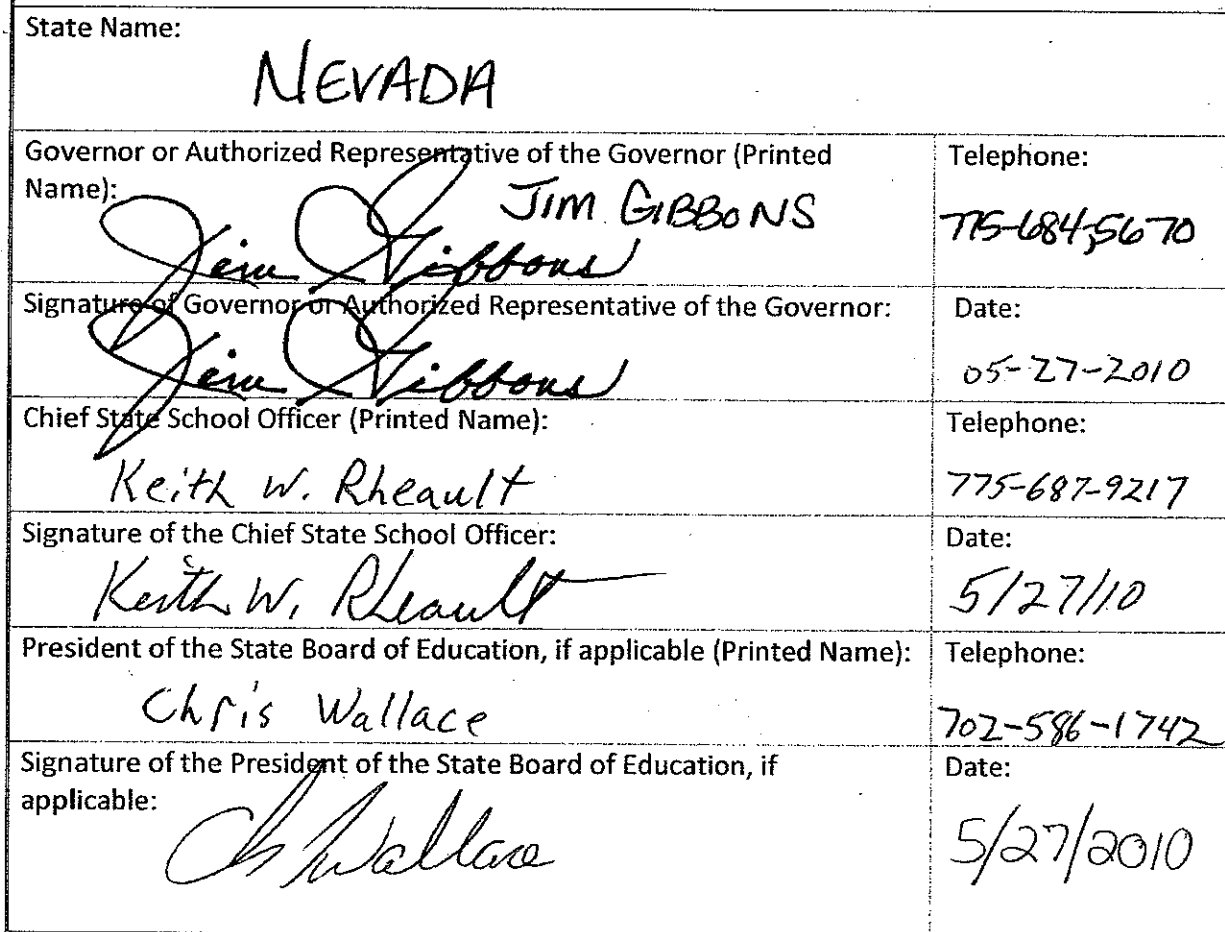 State Name:
NEVADA
Governor or Authorized Representative of the Governor (Printed
Name):
JIM GIBBONS
Jim Gibbons
Telephone:
775-684-5670
Signature of Governor or Authorized Representative of the Governor:
Jim Gibbons
Date:
05-27-2010
Chief State School Officer (Printed Name):
Keith W. Rheault
Telephone:
775-687-9217
Signature of the Chief State School Officer:
Keith W. Rheault
Date:
5/27/10
President of the State Board of Education, if applicable (Printed Name):
Chris Wallace
Telephone:
702-586-1742
Signature of the President of the State Board of Education, if
applicable:
Ch Wallace
Date:
5/27/2010